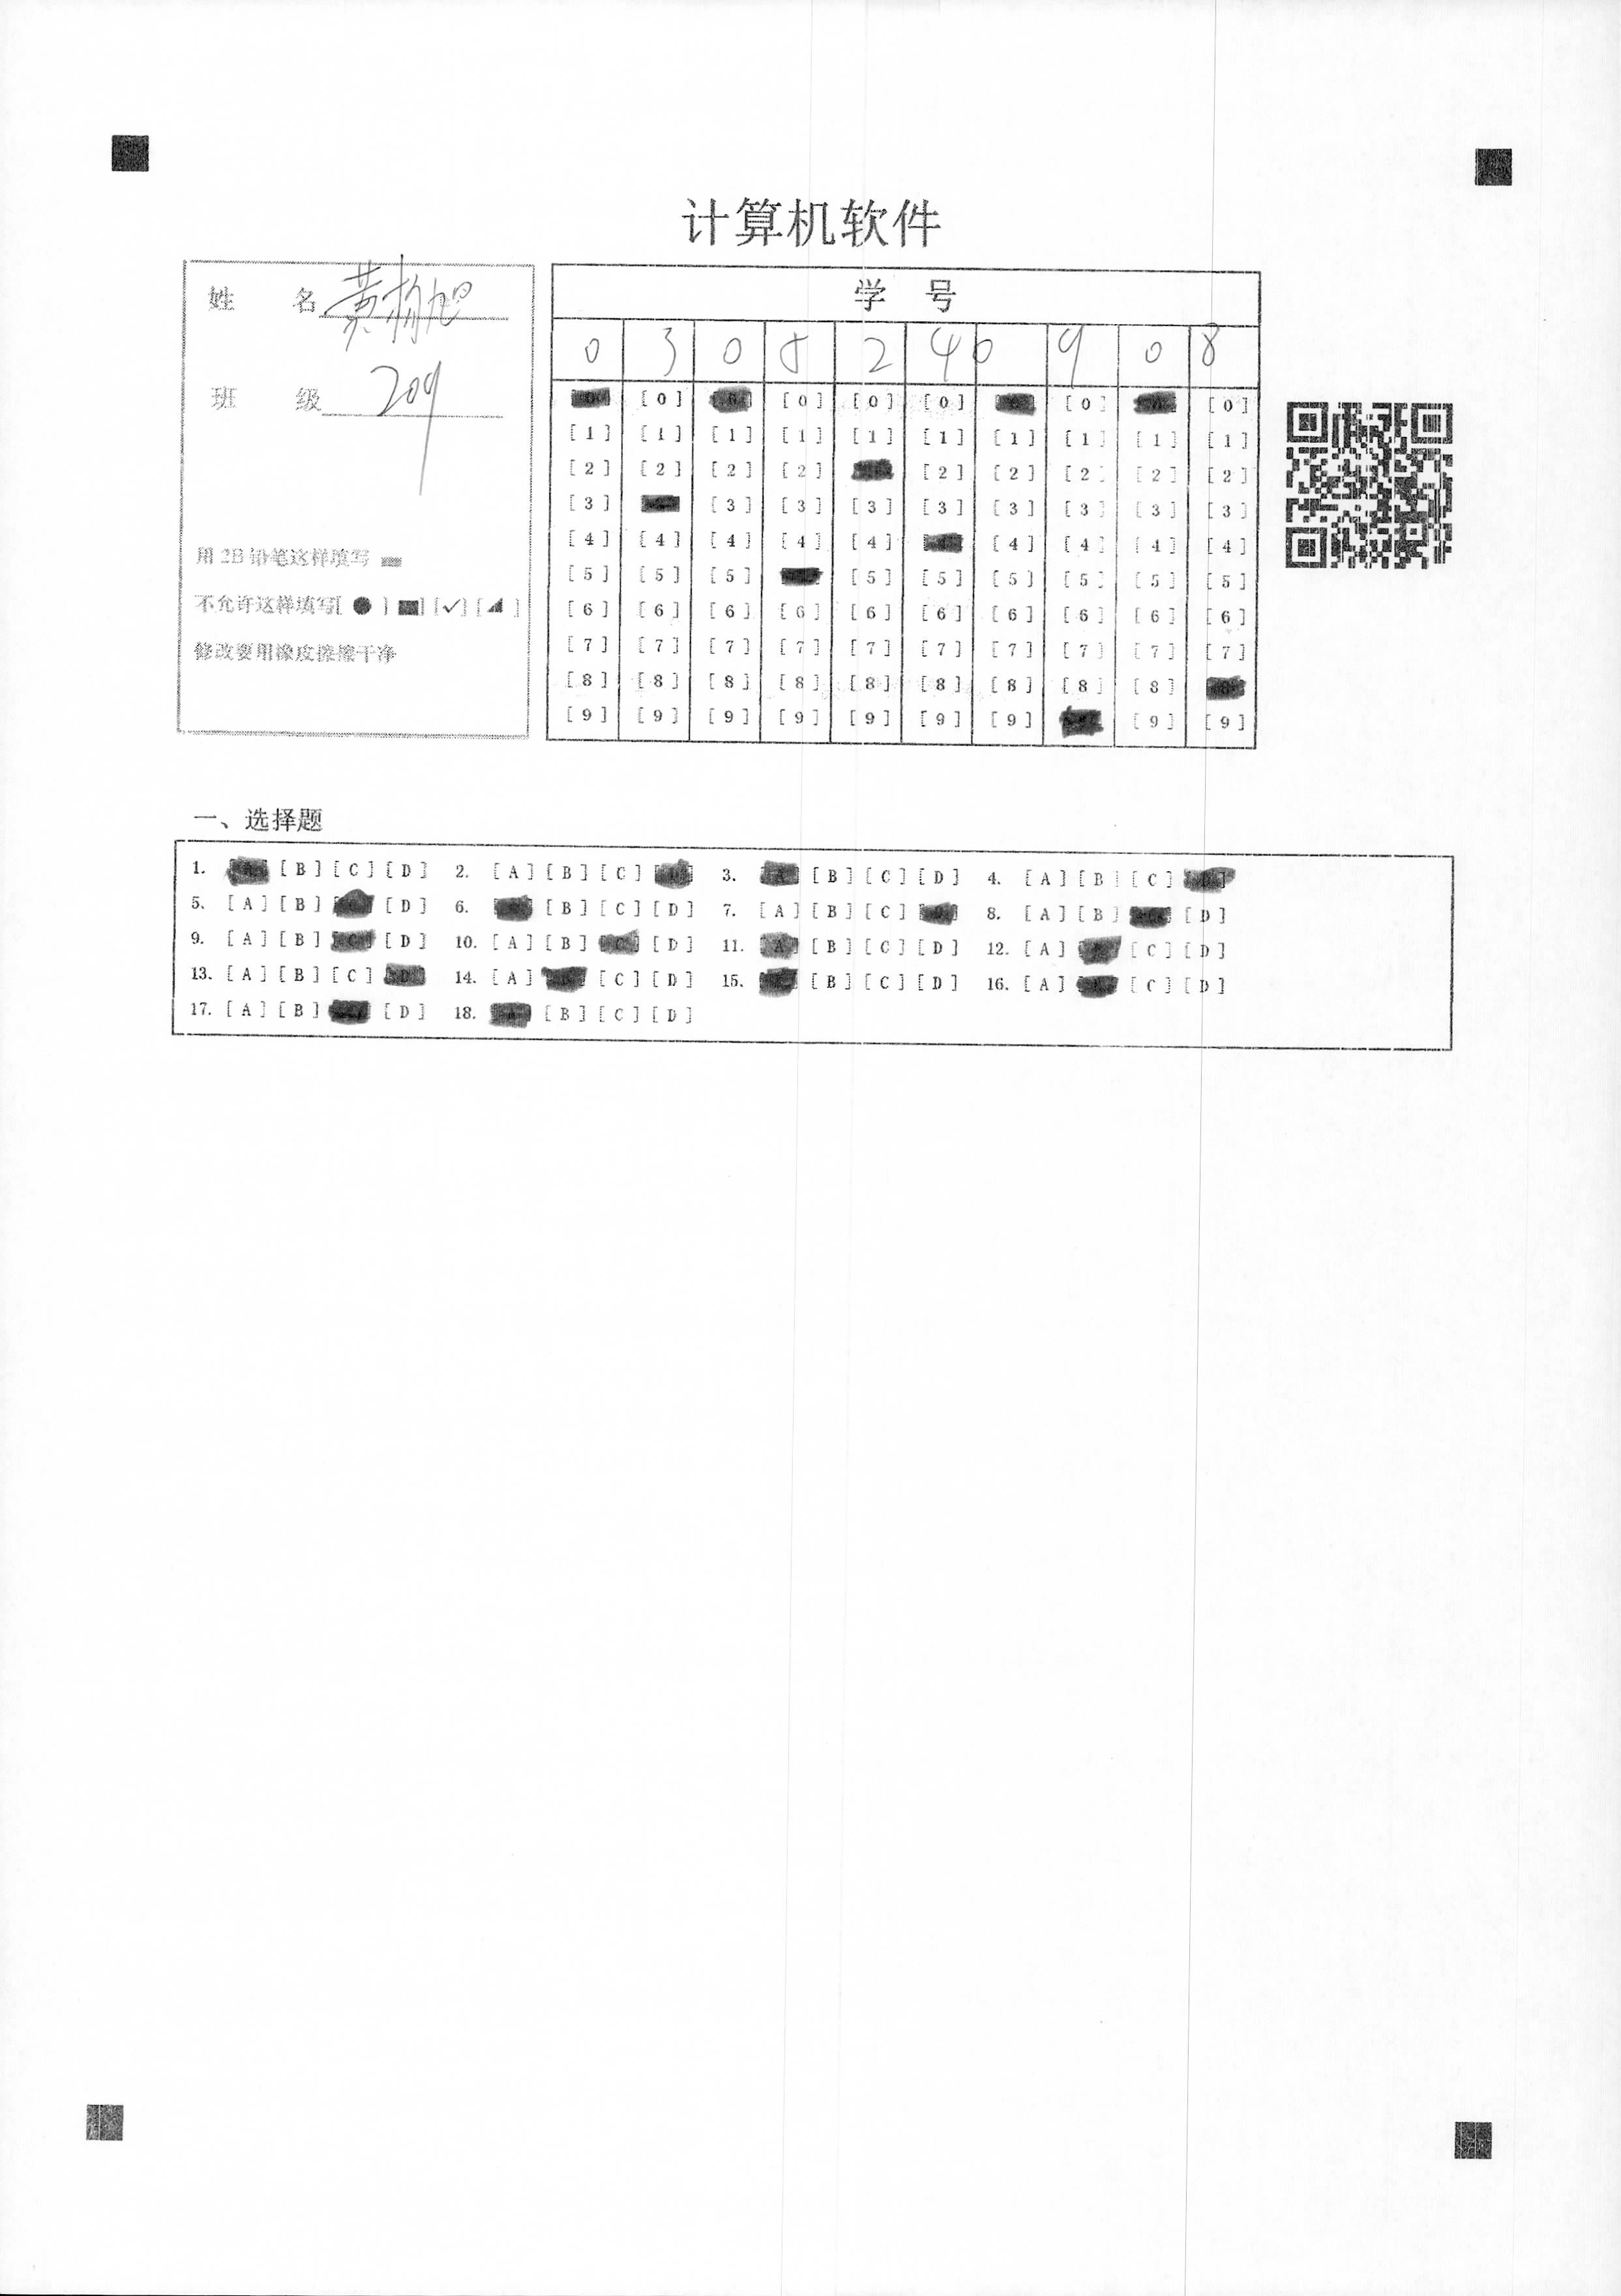 计算机软件
姓 名 黄杨旭
班 级 209
用2B铅笔这样填写
不允许这样填写[ ● ] [■] [✓] [◢]
修改要用橡皮擦擦干净
学 号
0 3 0 5 2 4 0 9 0 8
[0] [0] [0] [0] [0] [0]
[1] [1] [1] [1] [1] [1] [1] [1] [1] [1]
[2] [2] [2] [2] [2] [2] [2] [2] [2]
[3] [3] [3] [3] [3] [3] [3] [3] [3]
[4] [4] [4] [4] [4] [4] [4] [4] [4]
[5] [5] [5] [5] [5] [5] [5] [5] [5]
[6] [6] [6] [6] [6] [6] [6] [6] [6] [6]
[7] [7] [7] [7] [7] [7] [7] [7] [7] [7]
[8] [8] [8] [8] [8] [8] [8] [8] [8]
[9] [9] [9] [9] [9] [9] [9] [9] [9]
一、选择题
1. [A] [B] [C] [D] 2. [A] [B] [C] [D] 3. [A] [B] [C] [D] 4. [A] [B] [C] [D]
5. [A] [B] [D] 6. [B] [C] [D] 7. [A] [B] [C] 8. [A] [B] [D]
9. [A] [B] [C] [D] 10. [A] [B] [C] [D] 11. [A] [B] [C] [D] 12. [A] [C] [D]
13. [A] [B] [C] [D] 14. [A] [C] [D] 15. [B] [C] [D] 16. [A] [C] [D]
17. [A] [B] [D] 18. [A] [B] [C] [D]